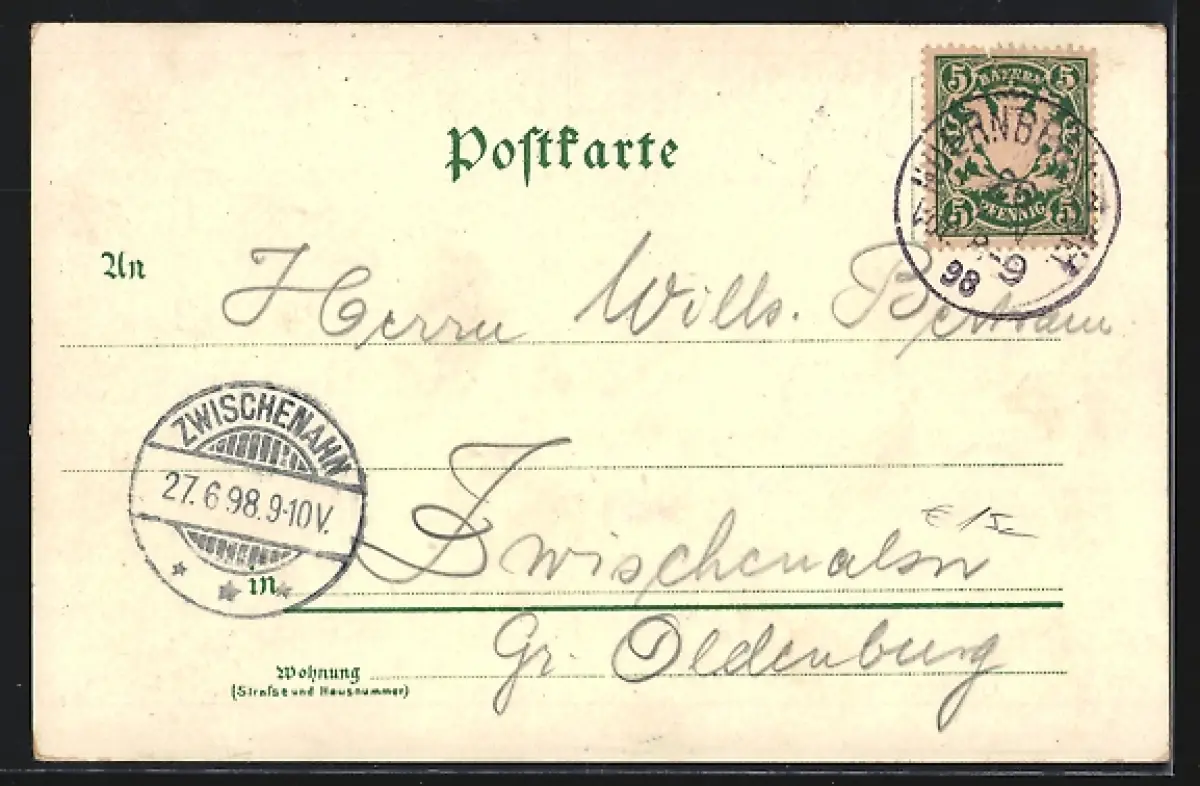 5 BAYERN 5
5 PFENNIG 5
NUERNBRG
8-9
98
Postkarte
An Herrn Wilh. Bertram
ZWISCHENAHN
27.6.98.9-10V.
in Zwischenahn
Gr. Oldenburg
Wohnung
(Strafse und Hausnummer)